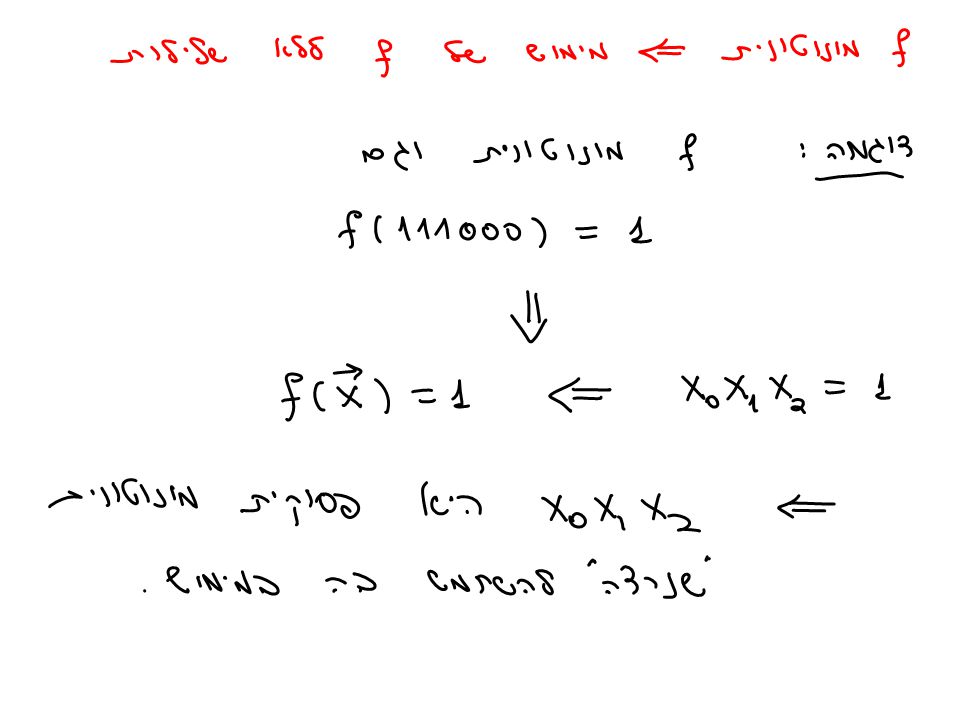 f מונוטונית ⇐ מימוש של f ללא שלילות
דוגמה: f מונוטונית וגם
f(111000) = 1
⇓
x₀x₁x₂ = 1 ⇐ f(x⃗) = 1
⇐ x₀x₁x₂ היא פסוקית מונוטונית
"שנרצה" להשתמש בה במימוש.